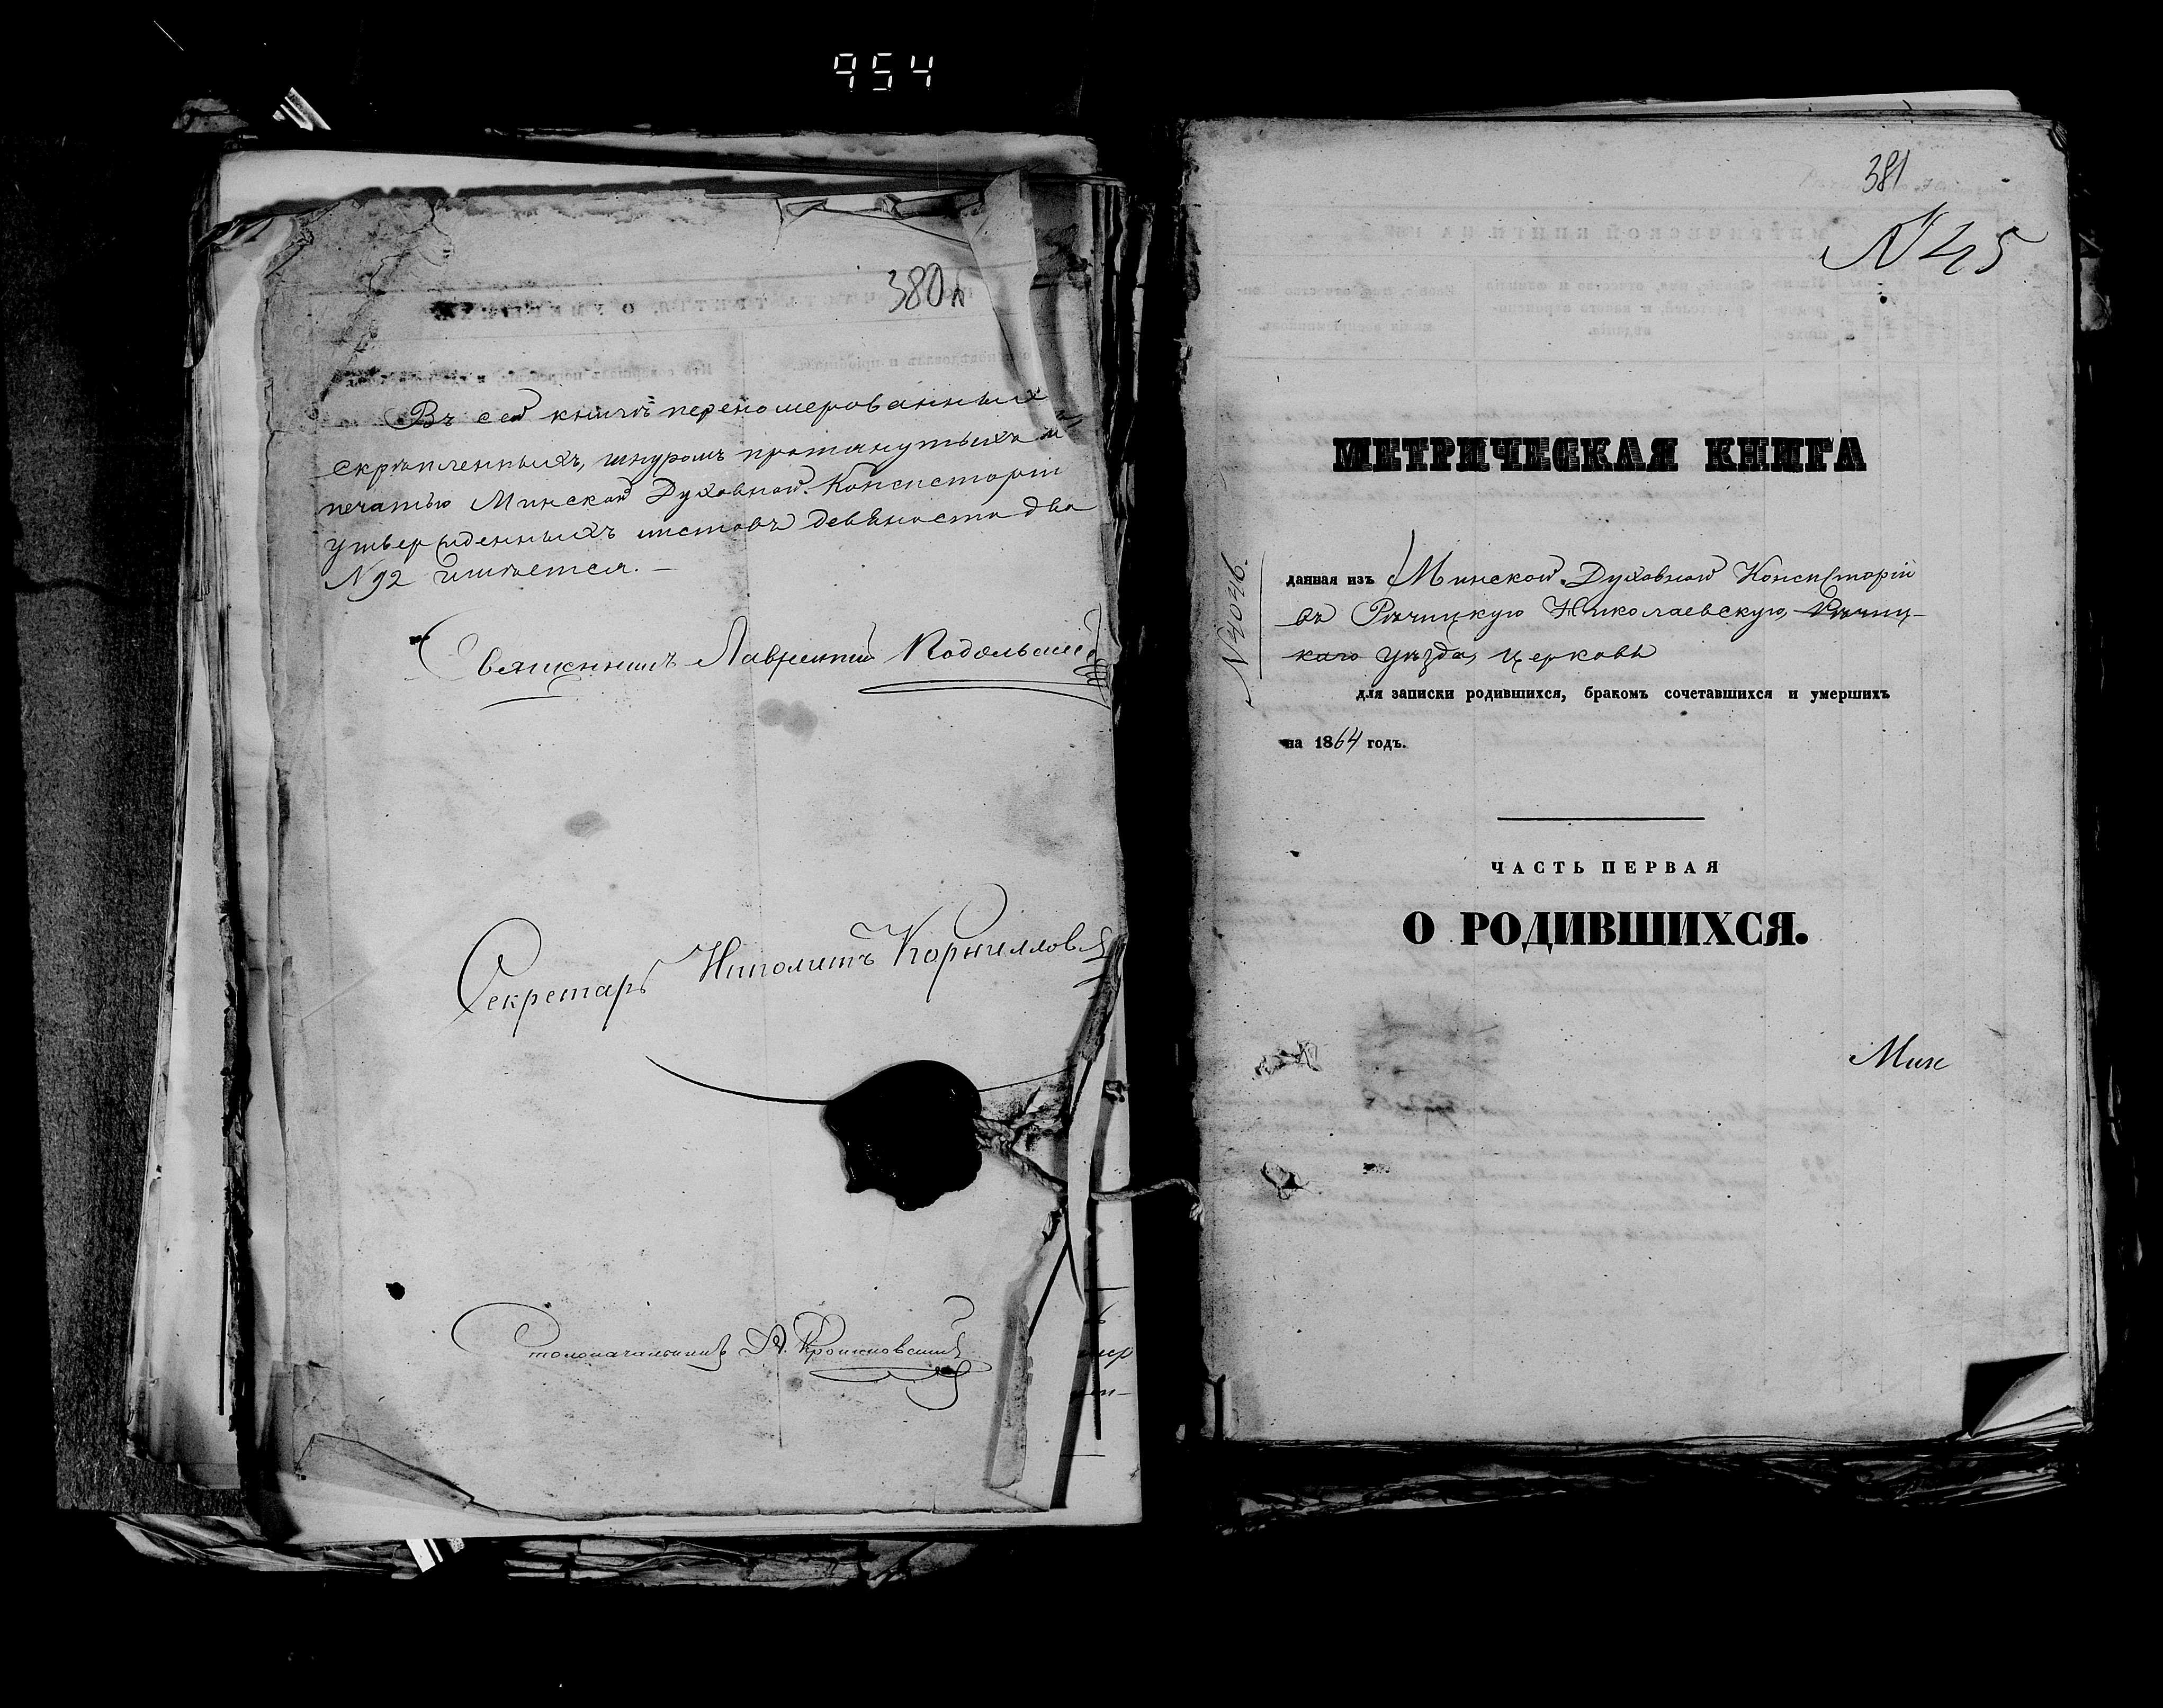 954
380
Въ сей книгѣ перенумерованныхъ
скрѣпленныхъ, шнуромъ протянутыхъ и
печатью Минской Духовной Консисторіи
утвержденныхъ листовъ девяносто два
N 92 числится.
Священникъ Лаврентій
Секретарь Ипполитъ Корниллов
Столоначальникъ
381
N 45
МЕТРИЧЕСКАЯ КНИГА
N 4046.
данная изъ Минской Духовной Консисторіи
въ Рѣчицкую Николаевскую, Рѣчиц-
каго уѣзда, церковь
для записки родившихся, бракомъ сочетавшихся и умершихъ
на 1864 годъ.
ЧАСТЬ ПЕРВАЯ
О РОДИВШИХСЯ.
Мин